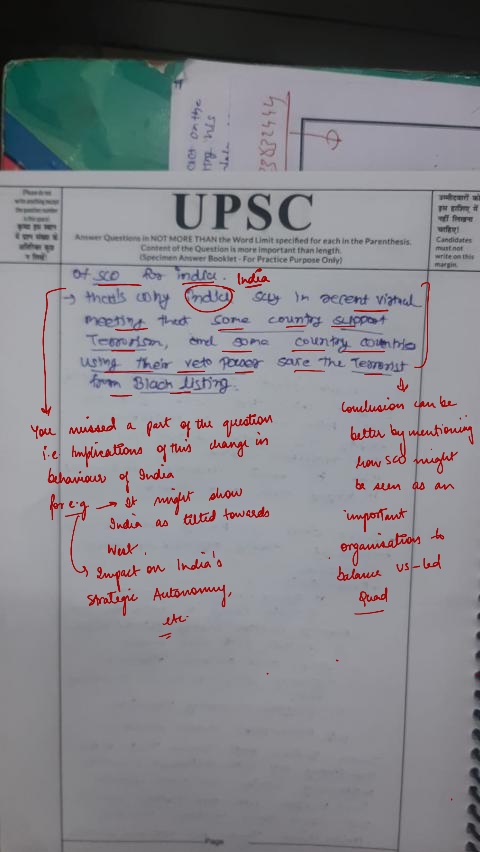 UPSC
Answer Questions in NOT MORE THAN the Word Limit specified for each in the Parenthesis.
Content of the Question is more important than length.
(Specimen Answer Booklet - For Practice Purpose Only)
उम्मीदवारों को
इस हाशिए में
नहीं लिखना
चाहिए।
Candidates
must not
write on this
margin.
of SCO for india. India
→ that's why india say in recent virtual
meeting that some country support
Terrorism, and some country countries
using their veto power save the Terrorist
from Black listing.
You missed a part of the question
i.e Implications of this change in
behaviour of India
for e.g → It might show
India as tilted towards
West.
→ Impact on India's
strategic Autonomy,
etc.
Conclusion can be
better by mentioning
how SCO might
be seen as an
important
organisation to
balance US-led
Quad
Page